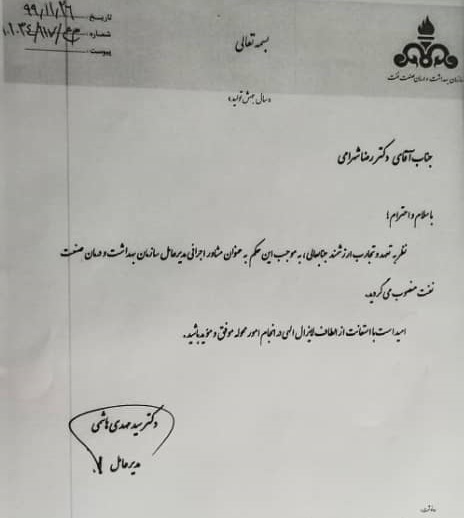 بسمه تعالی
تاریخ: ۹۹/۱۱/۲۶
شماره:
پیوست:
سازمان بهداشت و درمان صنعت نفت
«سال جهش تولید»
جناب آقای دکتر رضا شهرامی
با سلام و احترام؛
نظر به تعهد و تجارب ارزشمند جنابعالی، به موجب این حکم به عنوان مشاور اجرائی مدیرعامل سازمان بهداشت و درمان صنعت
نفت منصوب می گردید.
امید است با استعانت از الطاف لایزال الهی در انجام امور محوله موفق و مؤید باشید.
دکتر سید مهدی هاشمی
مدیرعامل